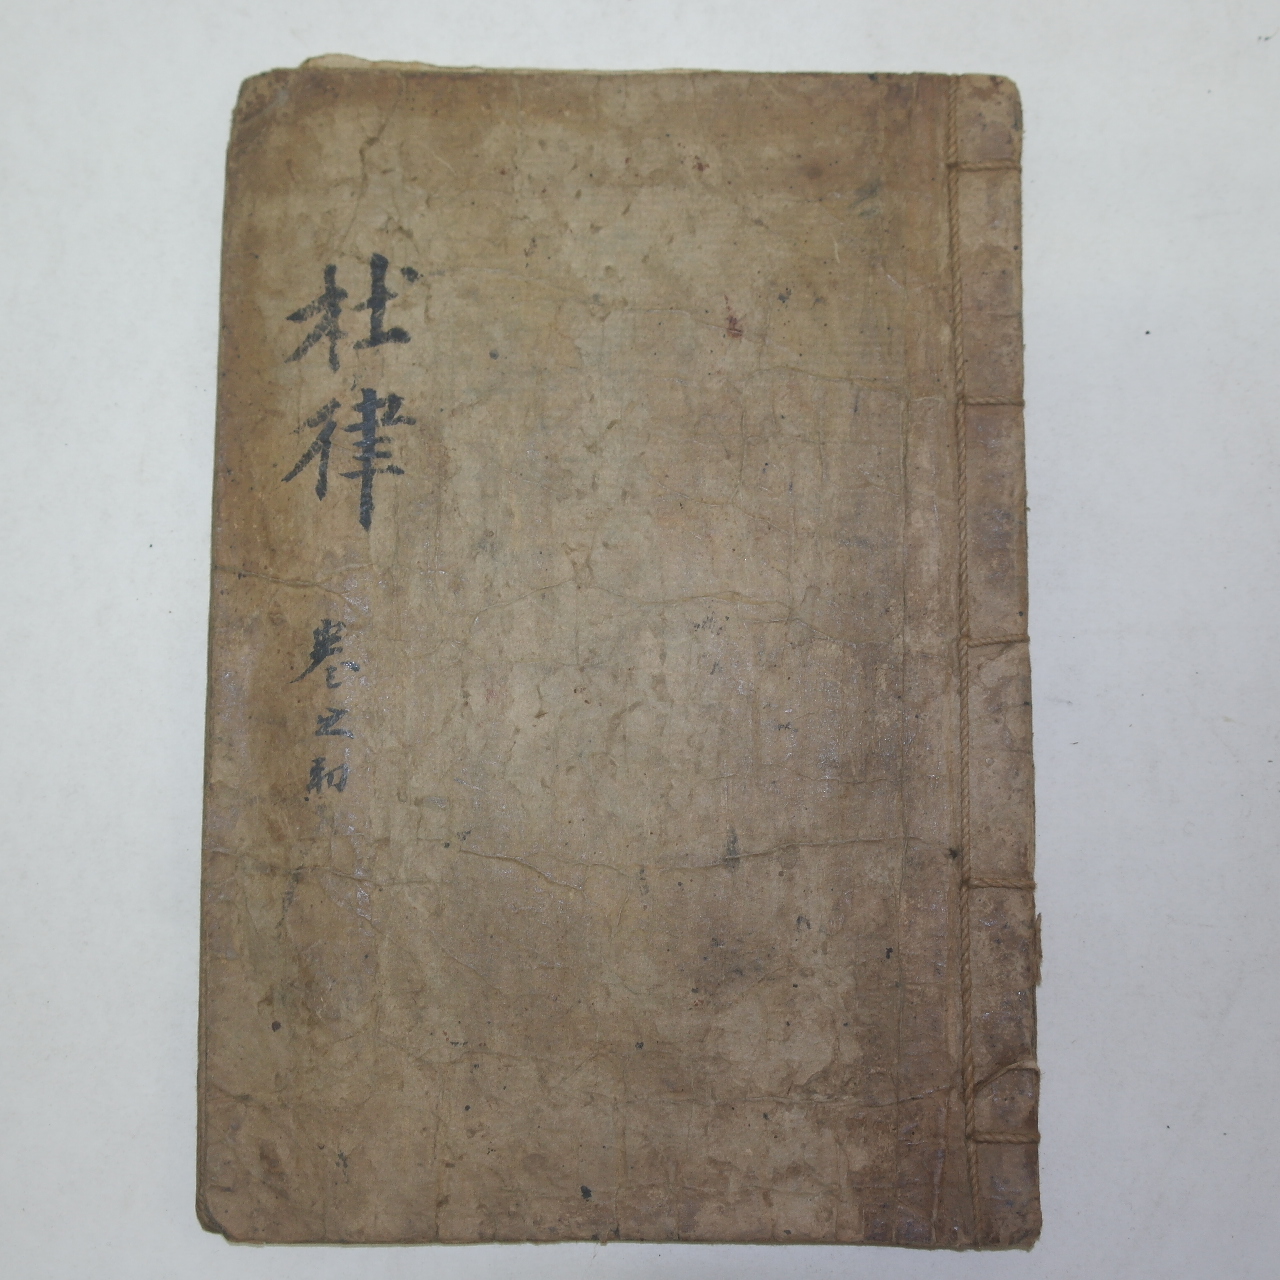 杜律
卷之初